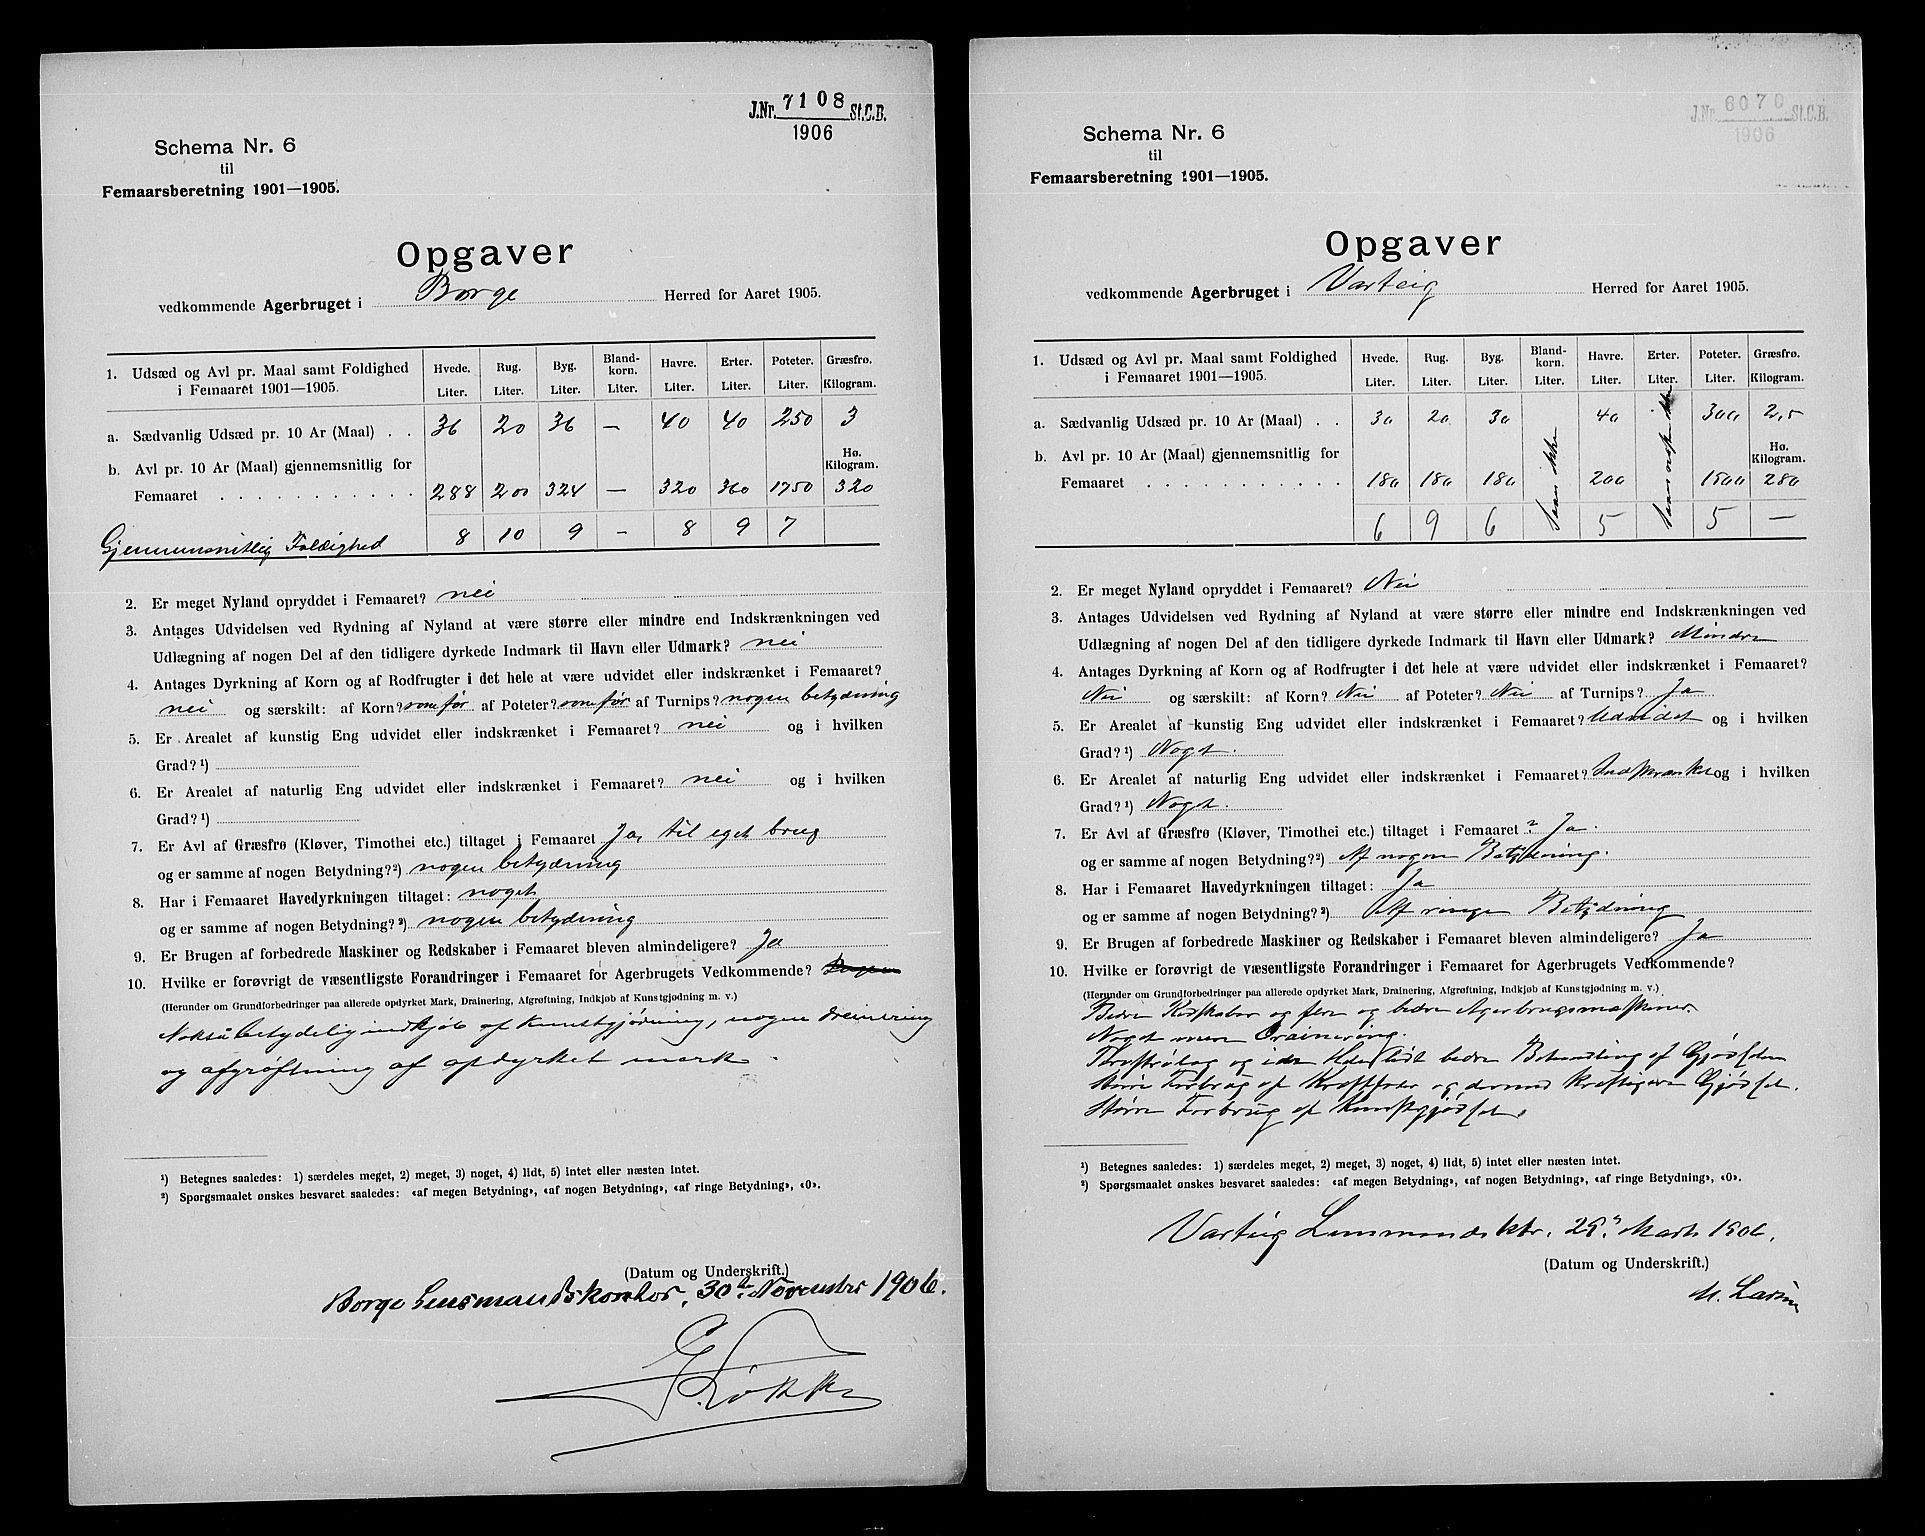 J.Nr. 7108 St.C.B.
1906
Schema Nr. 6
til
Femaarsberetning 1901—1905.
Opgaver
vedkommende Agerbruget i Borge Herred for Aaret 1905.
1. Udsæd og Avl pr. Maal samt Foldighed i Femaaret 1901—1905. Hvede. Liter. Rug. Liter. Byg. Liter. Bland-korn. Liter. Havre. Liter. Erter. Liter. Poteter. Liter. Græsfrø. Kilogram.
a. Sædvanlig Udsæd pr. 10 Ar (Maal) . . 36 20 36 — 40 40 250 3
Hø. Kilogram.
b. Avl pr. 10 Ar (Maal) gjennemsnitlig for
Femaaret . . . . . . . . . . . 288 200 324 — 320 360 1750 320
Gjennemsnitlig Foldighed 8 10 9 - 8 9 7
2. Er meget Nyland opryddet i Femaaret? nei
3. Antages Udvidelsen ved Rydning af Nyland at være større eller mindre end Indskrænkningen ved
Udlægning af nogen Del af den tidligere dyrkede Indmark til Havn eller Udmark? nei
4. Antages Dyrkning af Korn og af Rodfrugter i det hele at være udvidet eller indskrænket i Femaaret?
nei og særskilt: af Korn? som før af Poteter? som før af Turnips? nogen betydning
5. Er Arealet af kunstig Eng udvidet eller indskrænket i Femaaret? nei og i hvilken
Grad?¹)
6. Er Arealet af naturlig Eng udvidet eller indskrænket i Femaaret? nei og i hvilken
Grad?¹)
7. Er Avl af Græsfrø (Kløver, Timothei etc.) tiltaget i Femaaret Ja, til eget brug
og er samme af nogen Betydning?²) nogen betydning
8. Har i Femaaret Havedyrkningen tiltaget: noget
og er samme af nogen Betydning?²) nogen betydning
9. Er Brugen af forbedrede Maskiner og Redskaber i Femaaret bleven almindeligere? Ja
10. Hvilke er forøvrigt de væsentligste Forandringer i Femaaret for Agerbrugets Vedkommende?
(Herunder om Grundforbedringer paa allerede opdyrket Mark, Drainering, Afgrøftning, Indkjøb af Kunstgjødning m. v.)
Nokså betydelig indkjøb af kunstgjødning, nogen dreinering
og afgrøftning af opdyrket mark.
¹) Betegnes saaledes: 1) særdeles meget, 2) meget, 3) noget, 4) lidt, 5) intet eller næsten intet.
²) Spørgsmaalet ønskes besvaret saaledes: «af megen Betydning», «af nogen Betydning», «af ringe Betydning», «0».
(Datum og Underskrift.)
Borge Lensmandskontor, 30te November 1906.
Løkke
J.Nr. 6070 St.C.B.
1906
Schema Nr. 6
til
Femaarsberetning 1901—1905.
Opgaver
vedkommende Agerbruget i Varteig Herred for Aaret 1905.
1. Udsæd og Avl pr. Maal samt Foldighed i Femaaret 1901—1905. Hvede. Liter. Rug. Liter. Byg. Liter. Bland-korn. Liter. Havre. Liter. Erter. Liter. Poteter. Liter. Græsfrø. Kilogram.
a. Sædvanlig Udsæd pr. 10 Ar (Maal) . . 30 20 30 Saaes ikke 40 Saaes ikke 300 2,5
Hø. Kilogram.
b. Avl pr. 10 Ar (Maal) gjennemsnitlig for
Femaaret . . . . . . . . . . . 180 180 180 200 1500 280
6 9 6 5 5 —
2. Er meget Nyland opryddet i Femaaret? Nei
3. Antages Udvidelsen ved Rydning af Nyland at være større eller mindre end Indskrænkningen ved
Udlægning af nogen Del af den tidligere dyrkede Indmark til Havn eller Udmark? Mindre
4. Antages Dyrkning af Korn og af Rodfrugter i det hele at være udvidet eller indskrænket i Femaaret?
Nei og særskilt: af Korn? Nei af Poteter? Nei af Turnips? Ja
5. Er Arealet af kunstig Eng udvidet eller indskrænket i Femaaret? Udvidet og i hvilken
Grad?¹) Noget.
6. Er Arealet af naturlig Eng udvidet eller indskrænket i Femaaret? Indskrænket og i hvilken
Grad?¹) Noget.
7. Er Avl af Græsfrø (Kløver, Timothei etc.) tiltaget i Femaaret? Ja.
og er samme af nogen Betydning?²) Af nogen Betydning.
8. Har i Femaaret Havedyrkningen tiltaget: Ja
og er samme af nogen Betydning?²) Af ringe Betydning
9. Er Brugen af forbedrede Maskiner og Redskaber i Femaaret bleven almindeligere? Ja
10. Hvilke er forøvrigt de væsentligste Forandringer i Femaaret for Agerbrugets Vedkommende?
(Herunder om Grundforbedringer paa allerede opdyrket Mark, Drainering, Afgrøftning, Indkjøb af Kunstgjødning m. v.)
Bedre Redskaber og flere og bedre Agerbrugsmaskiner.
Noget mere Drainering.
og bedre Behandling af Gjødselen
Større Forbrug af Kraftfoder og dermed kraftigere Gjødsel.
Større Forbrug af Kunstgjødsel.
¹) Betegnes saaledes: 1) særdeles meget, 2) meget, 3) noget, 4) lidt, 5) intet eller næsten intet.
²) Spørgsmaalet ønskes besvaret saaledes: «af megen Betydning», «af nogen Betydning», «af ringe Betydning», «0».
Varteig Lensmandsktr. 29. Marts 1906.
(Datum og Underskrift.)
M. Larsen